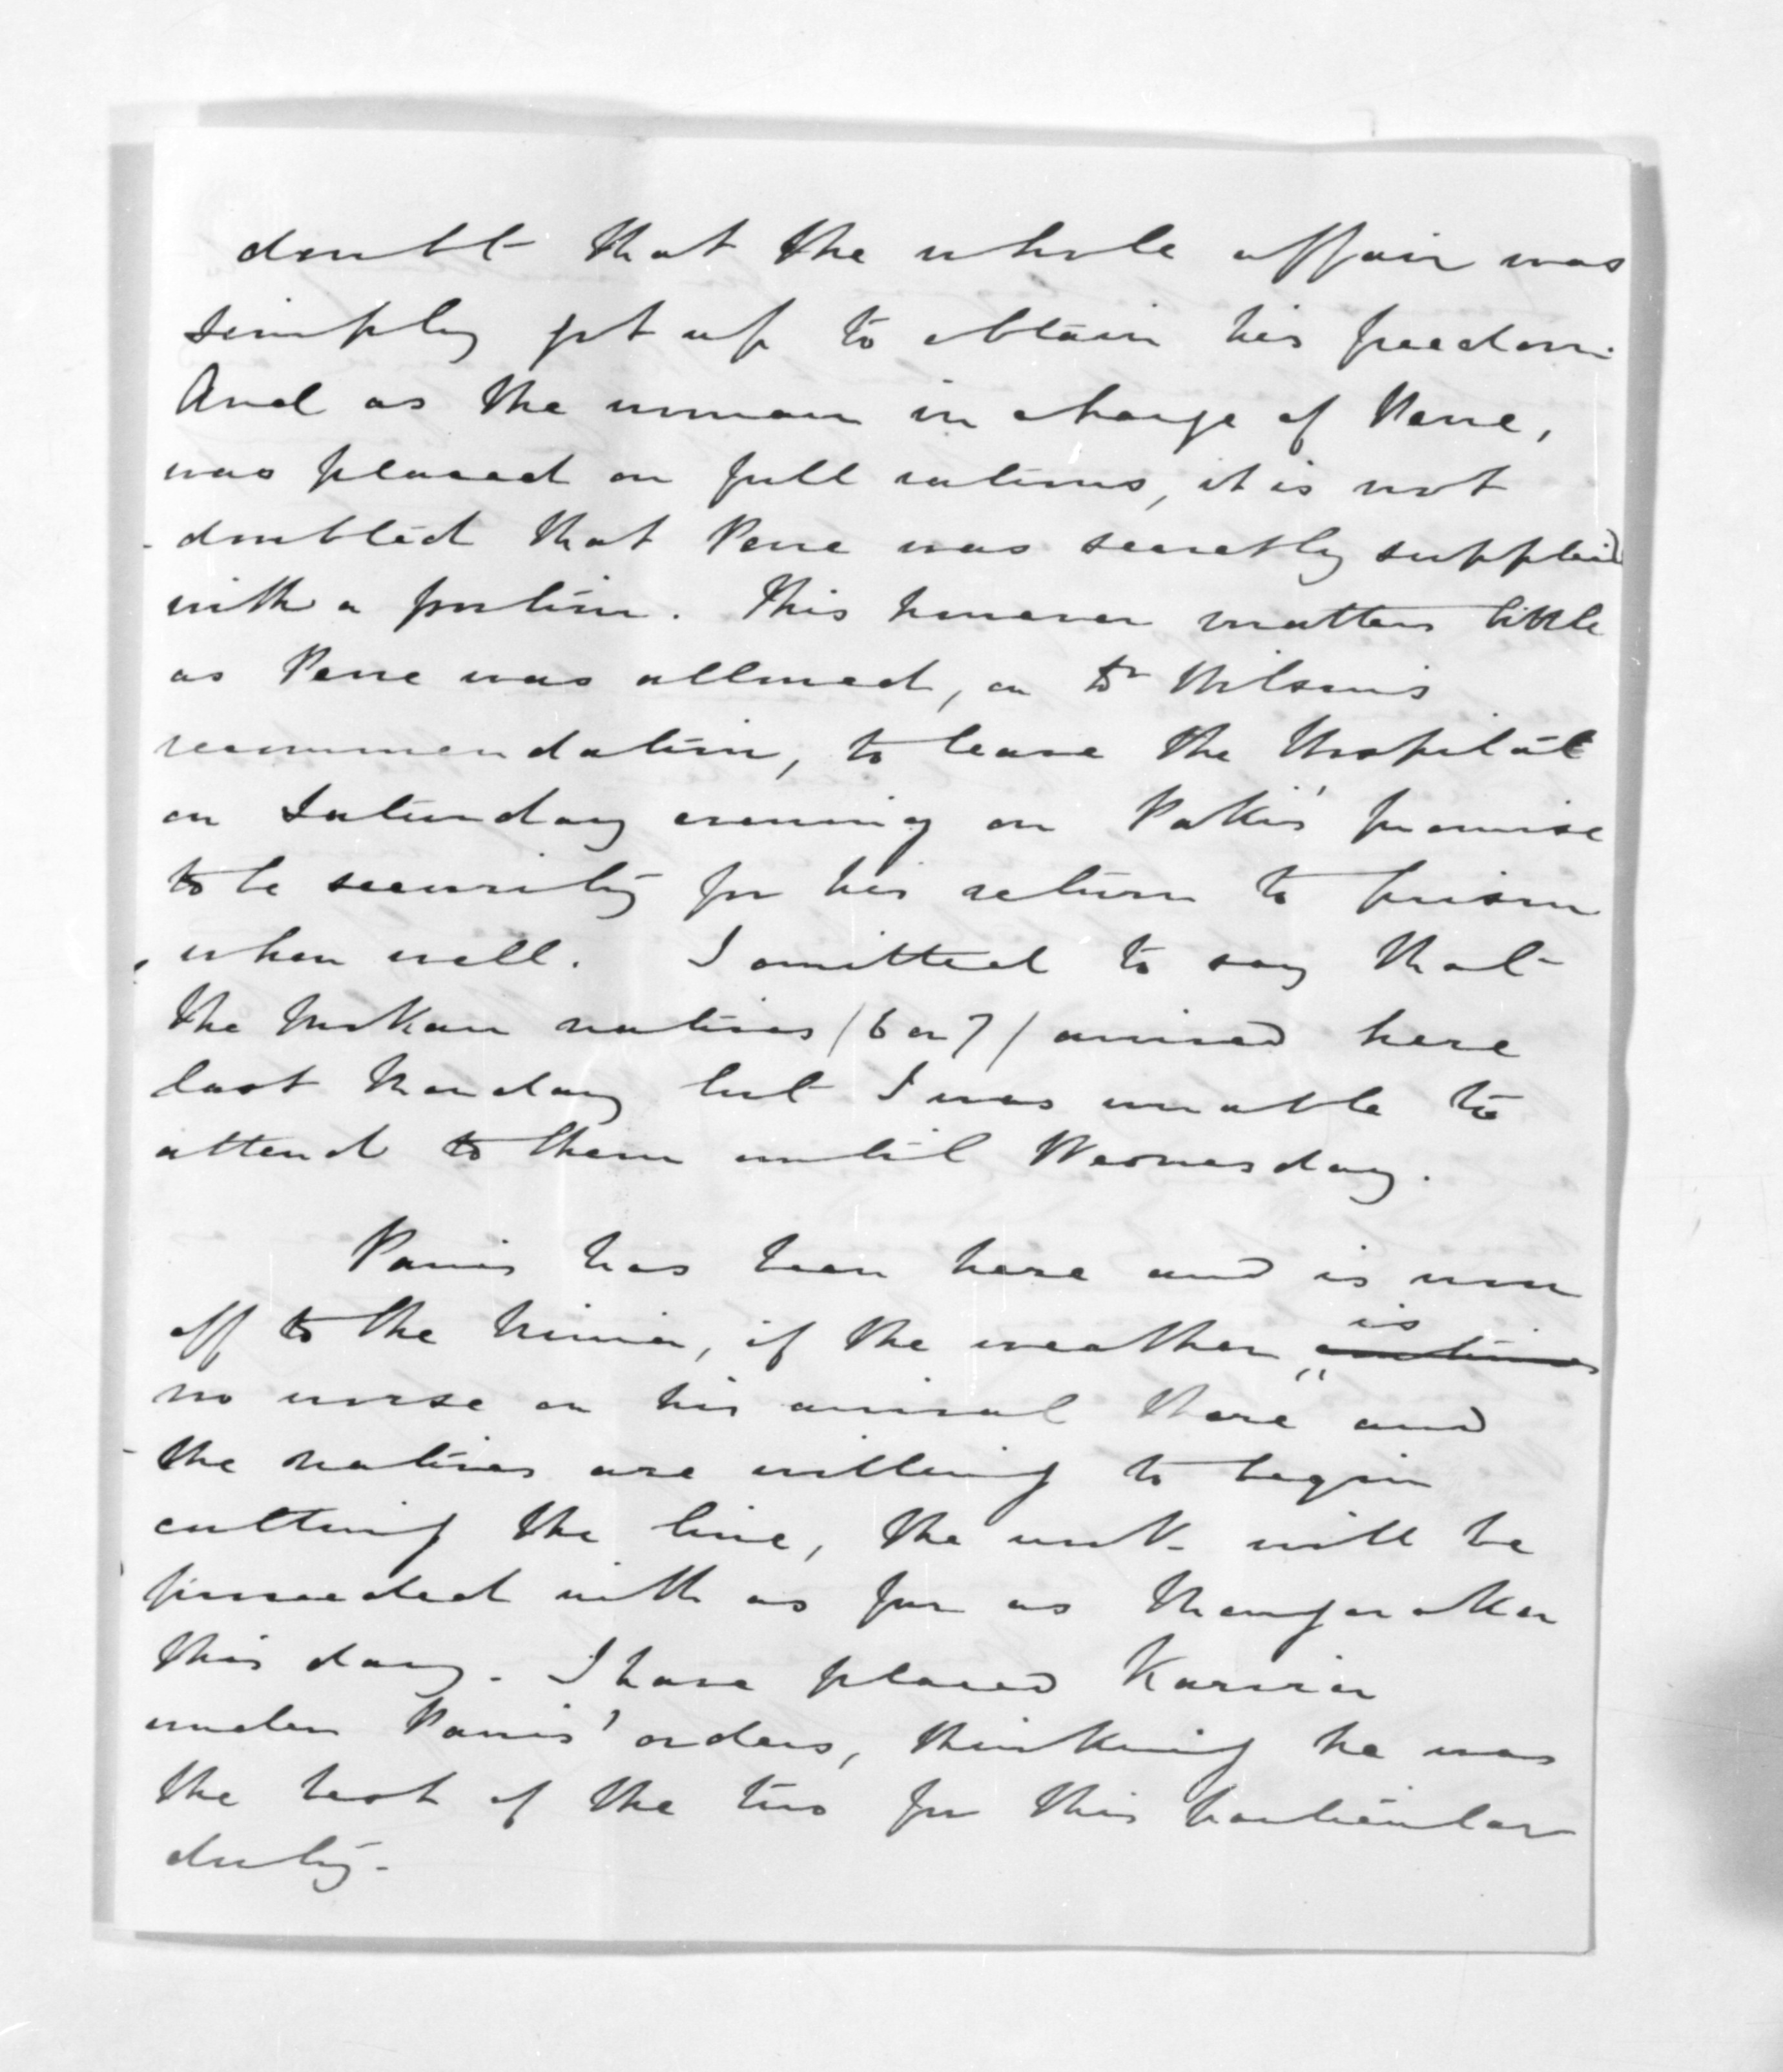 doubt that the whole affair was
simply got up to obtain his freedom.
And as the woman in charge of Pene,
was placed on full rations, it is not
doubted that Pene was secretly supplied
with a portion. This however matters little
as Pene was allowed, on Dr Wilson's
recommendation, to leave the Hospital
on Saturday evening on Patki's promise
to be security for his return to prison
when well. I omitted to say that
the Mokau natives (6 or 7) arrived here
last Monday but I was unable to
attend to them until Wednesday.
Parris has been here and is now
off to the Nimia, if the weather is
no worse on his arrival there and
the natives are willing to begin
cutting the line, the work will be
proceeded with as far as Mangaraka
this day. I have placed Karira
under Parris' orders, thinking he was
the best of the two for this particular
duty.